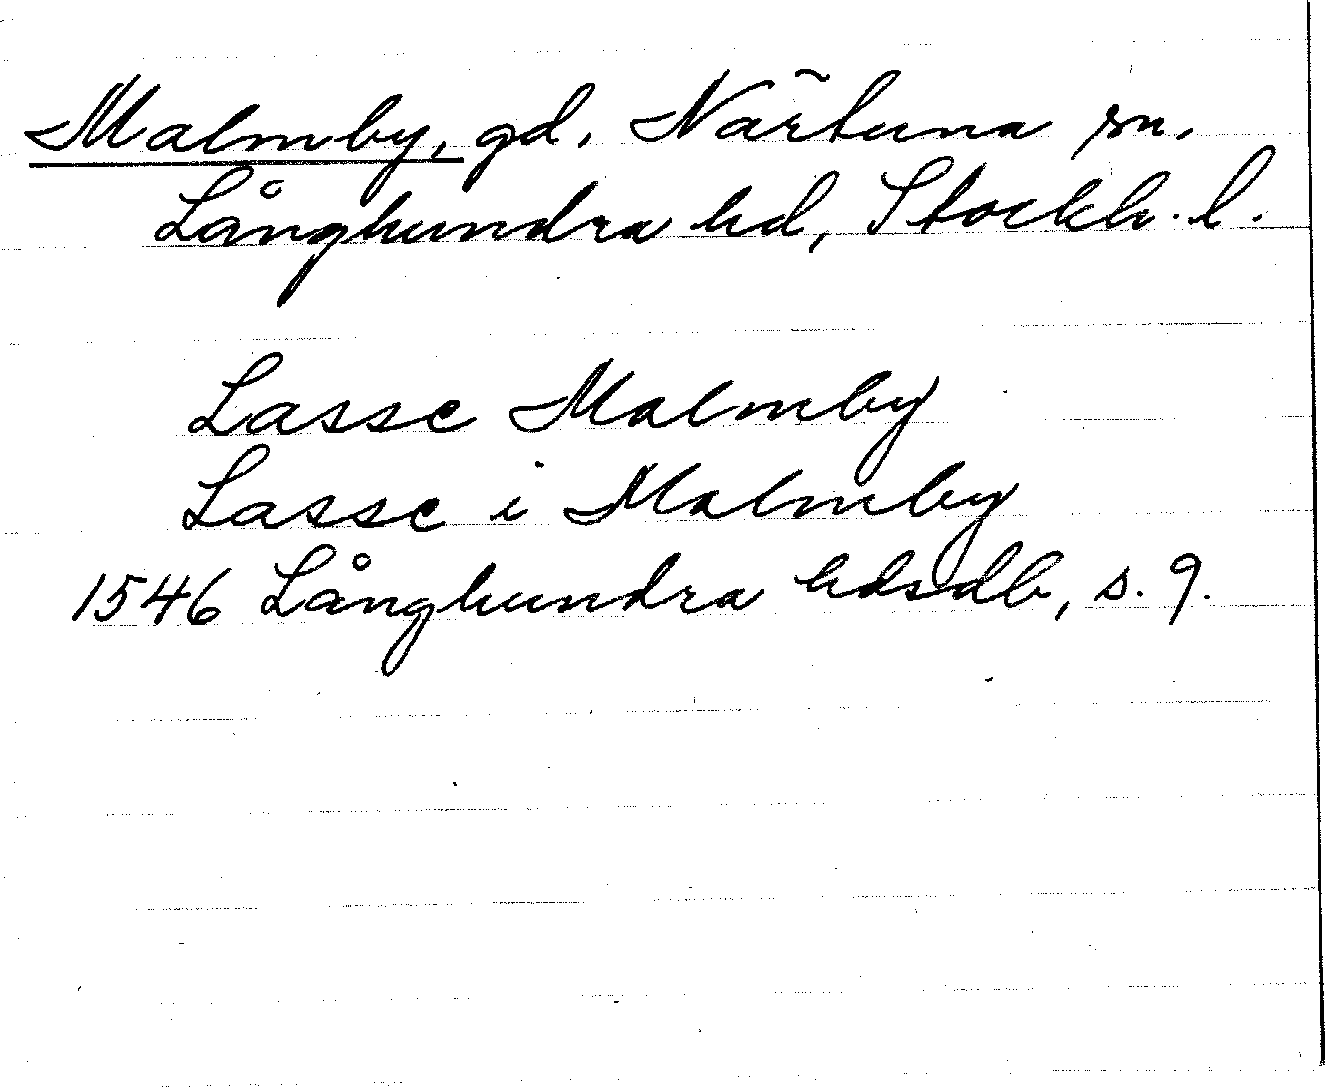 Malmby, gd. Närtuna sn.
Långhundra hd, Stockh. l.
Lasse Malmby
Lasse i Malmby
1546 Långhundra hdsdb, s. 9.